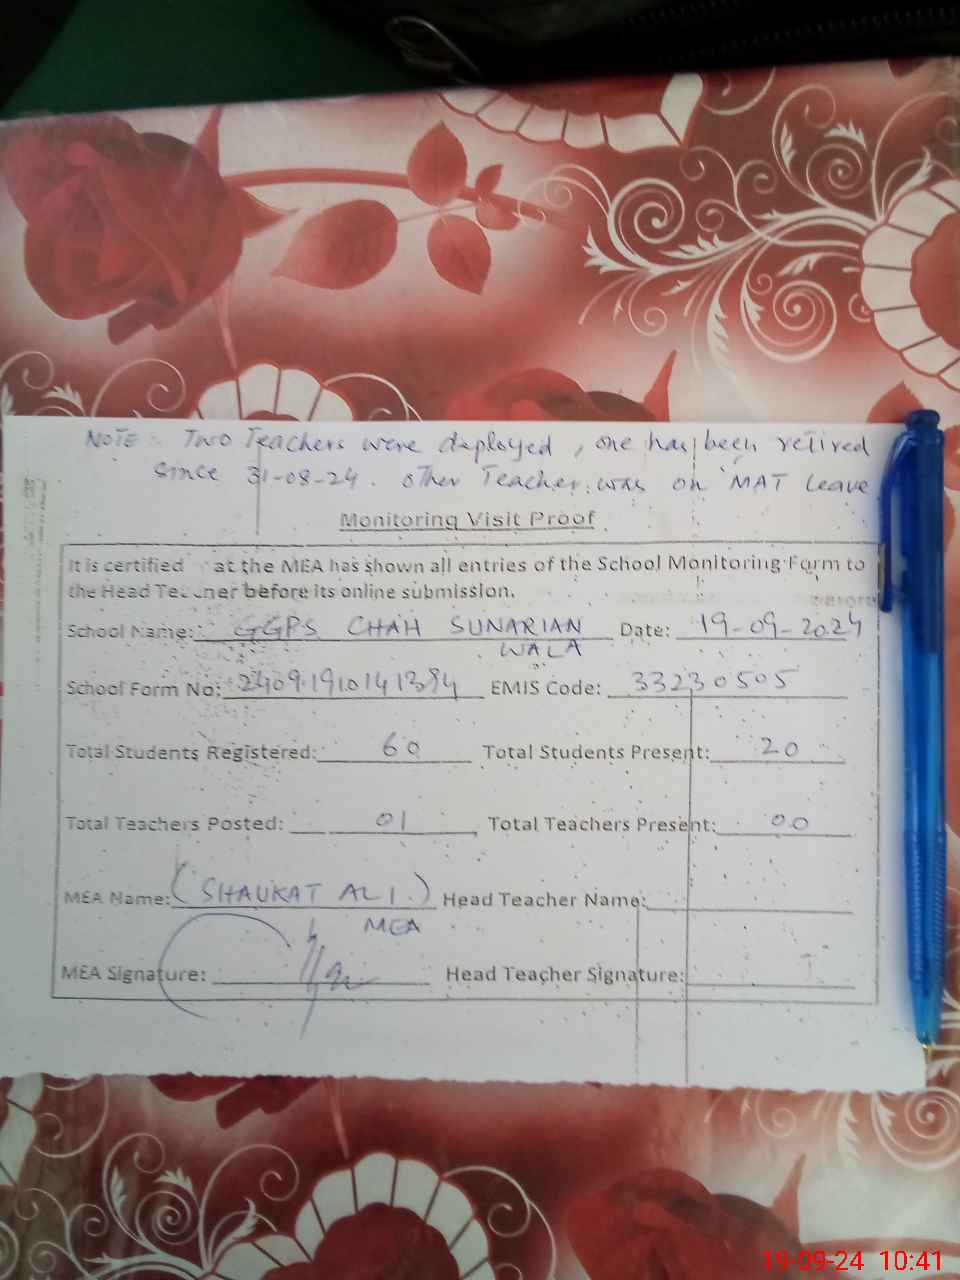 NOTE : Two Teachers were deployed, one has been retired
since 31-08-24. other Teacher was on MAT Leave
Monitoring Visit Proof
It is certified at the MEA has shown all entries of the School Monitoring Form to
the Head Te cher before its online submission.
School Name: GGPS CHAH SUNARIAN Date: 19-09-2024
WALA
School Form No: EMIS Code: 33230505
Total Students Registered: 60 Total Students Present: 20
Total Teachers Posted: 01 Total Teachers Present: 00
MEA Name: (SHAUKAT ALI.) Head Teacher Name:
MEA
MEA Signature: Head Teacher Signature:
19-09-24 10:41